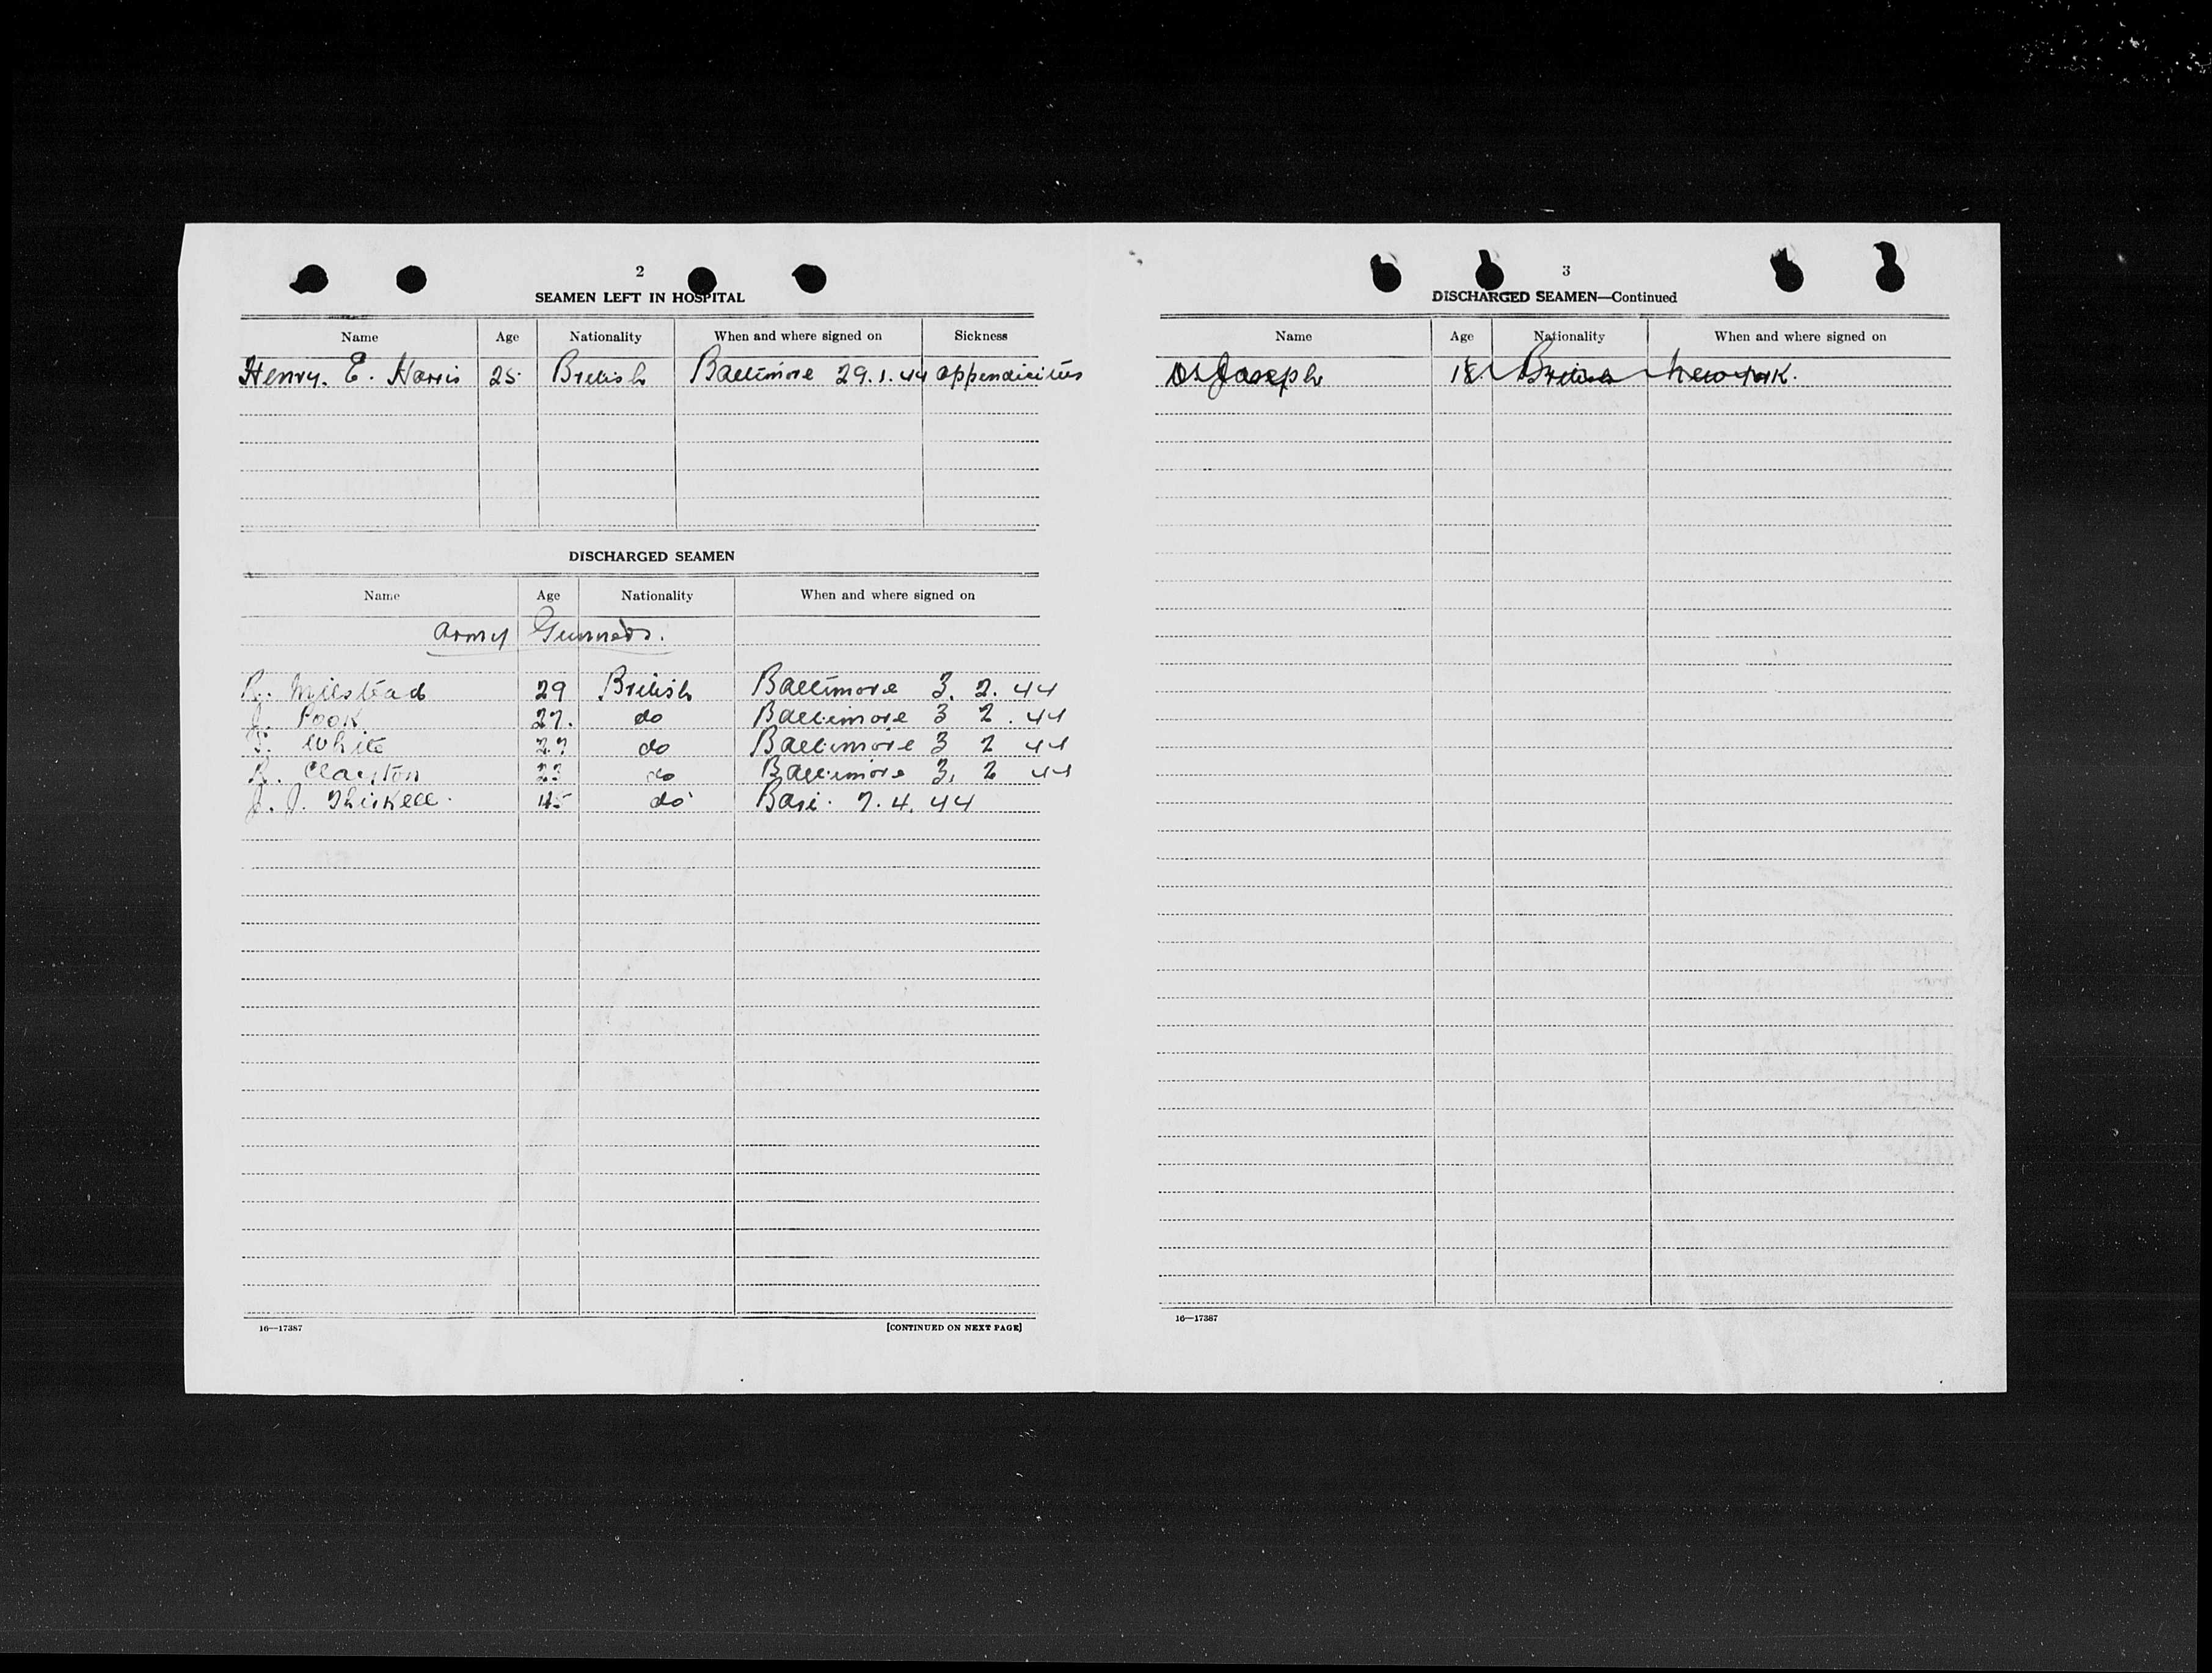 2
SEAMEN LEFT IN HOSPITAL
Name Age Nationality When and where signed on Sickness
Henry. E. Harris 25 British Baltimore 29.1.44 appendicitus
DISCHARGED SEAMEN
Name Age Nationality When and where signed on
Army Gunners.
R. Milstead 29 British Baltimore 3. 2. 44
J. Pook 27. do Baltimore 3 2. 44
White 27 do Baltimore 3 2 44
R. Clayton 23 do Baltimore 3. 2 44
J. J. Thirkell. 45 do Bari. 7. 4. 44
16—17387 [CONTINUED ON NEXT PAGE]
3
DISCHARGED SEAMEN—Continued
Name Age Nationality When and where signed on
Joseph 18 British New York.
16—17387